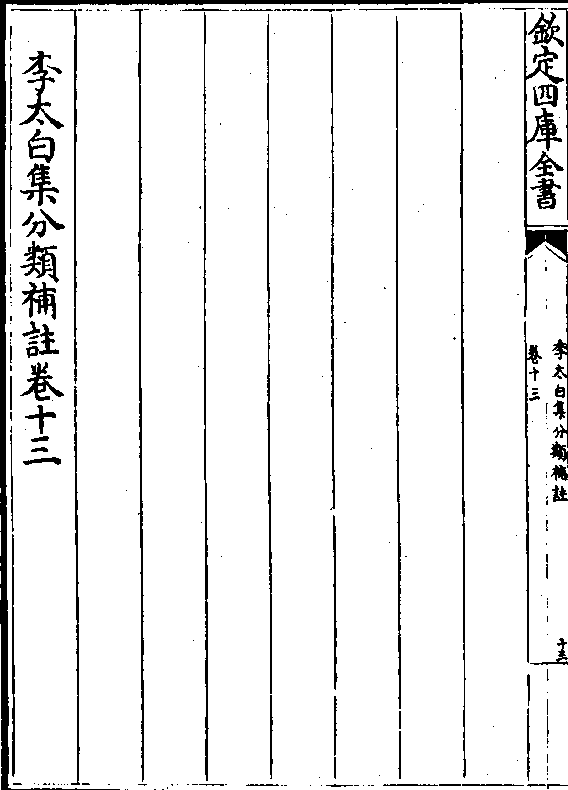 欽定四庫全書
李太白集分類補註
卷十三
李太白集分類補註卷十三